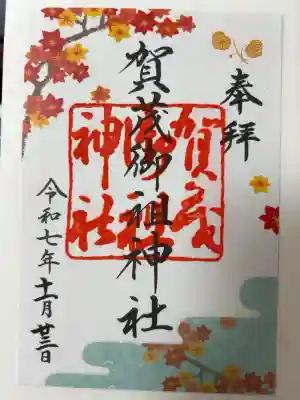 奉拝
賀茂御祖神社
賀茂御祖神社
令和七年十一月廿三日